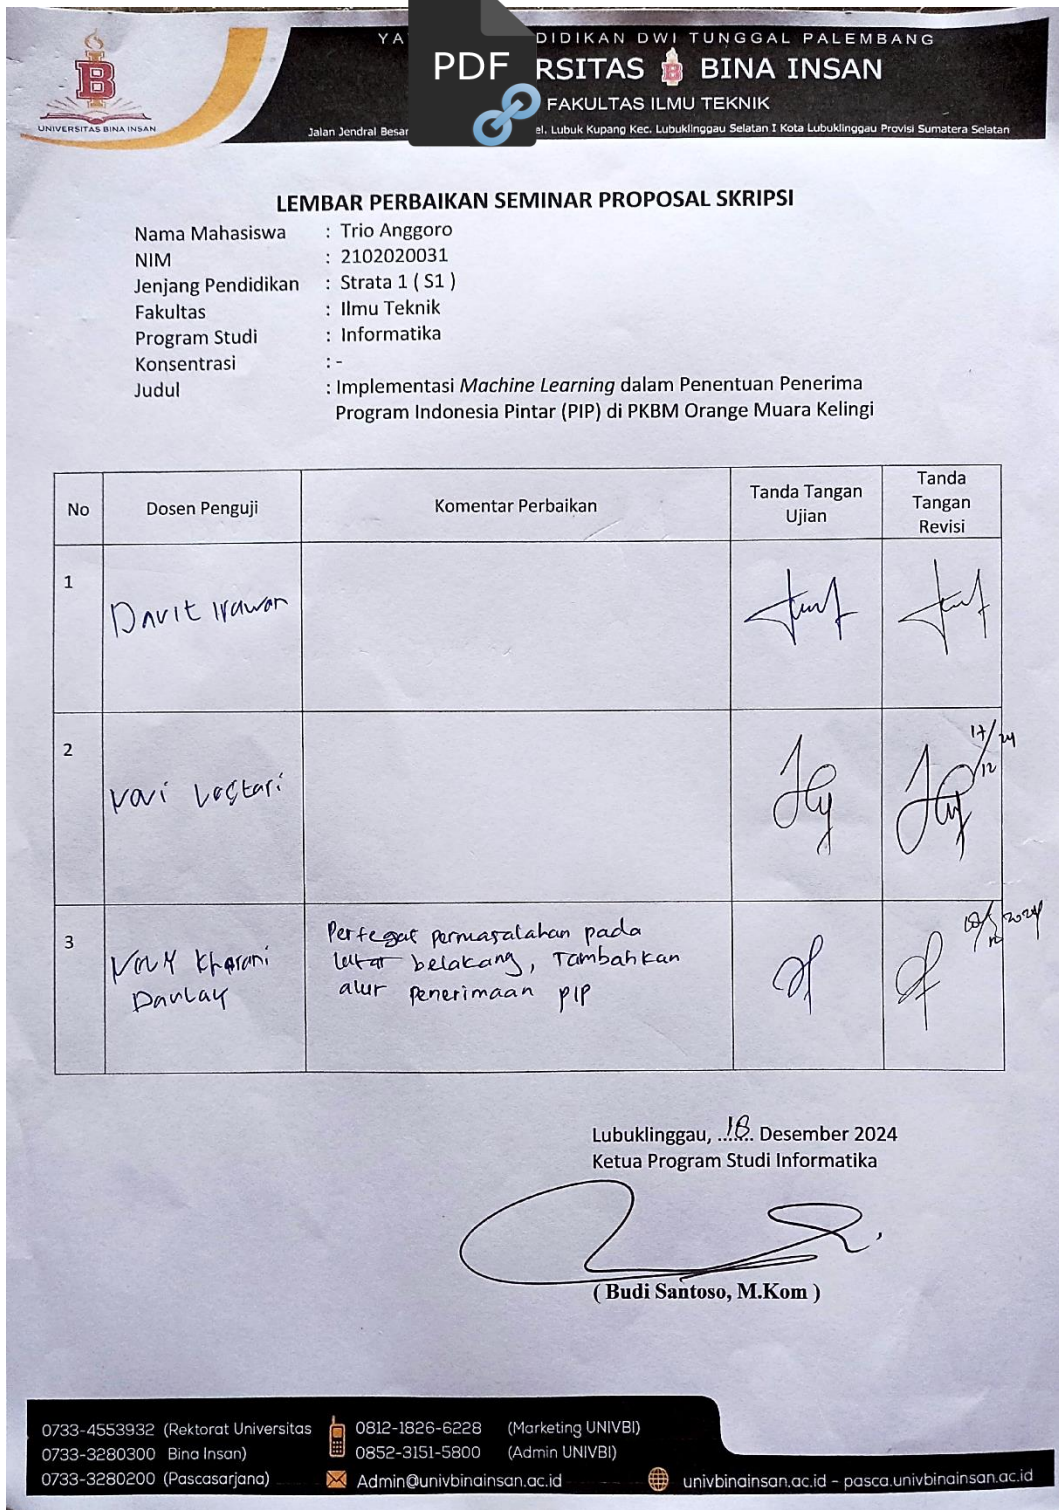 YA DIDIKAN DWI TUNGGAL PALEMBANG
PDF RSITAS BINA INSAN
FAKULTAS ILMU TEKNIK
UNIVERSITAS BINA INSAN
Jalan Jendral Besar el. Lubuk Kupang Kec. Lubuklinggau Selatan I Kota Lubuklinggau Provisi Sumatera Selatan
LEMBAR PERBAIKAN SEMINAR PROPOSAL SKRIPSI
Nama Mahasiswa : Trio Anggoro
NIM : 2102020031
Jenjang Pendidikan : Strata 1 ( S1 )
Fakultas : Ilmu Teknik
Program Studi : Informatika
Konsentrasi : -
Judul : Implementasi Machine Learning dalam Penentuan Penerima
Program Indonesia Pintar (PIP) di PKBM Orange Muara Kelingi
No Dosen Penguji Komentar Perbaikan Tanda Tangan Ujian Tanda Tangan Revisi
1 Davit Irawan
2 Lestari 17/12 24
3 Daulay
Pertegat permasalahan pada
latar belakang, Tambahkan
alur penerimaan PIP
Lubuklinggau, ..18.. Desember 2024
Ketua Program Studi Informatika
( Budi Santoso, M.Kom )
0733-4553932 (Rektorat Universitas
0733-3280300 Bina Insan)
0733-3280200 (Pascasarjana)
0812-1826-6228 (Marketing UNIVBI)
0852-3151-5800 (Admin UNIVBI)
Admin@univbinainsan.ac.id
univbinainsan.ac.id - pasca.univbinainsan.ac.id